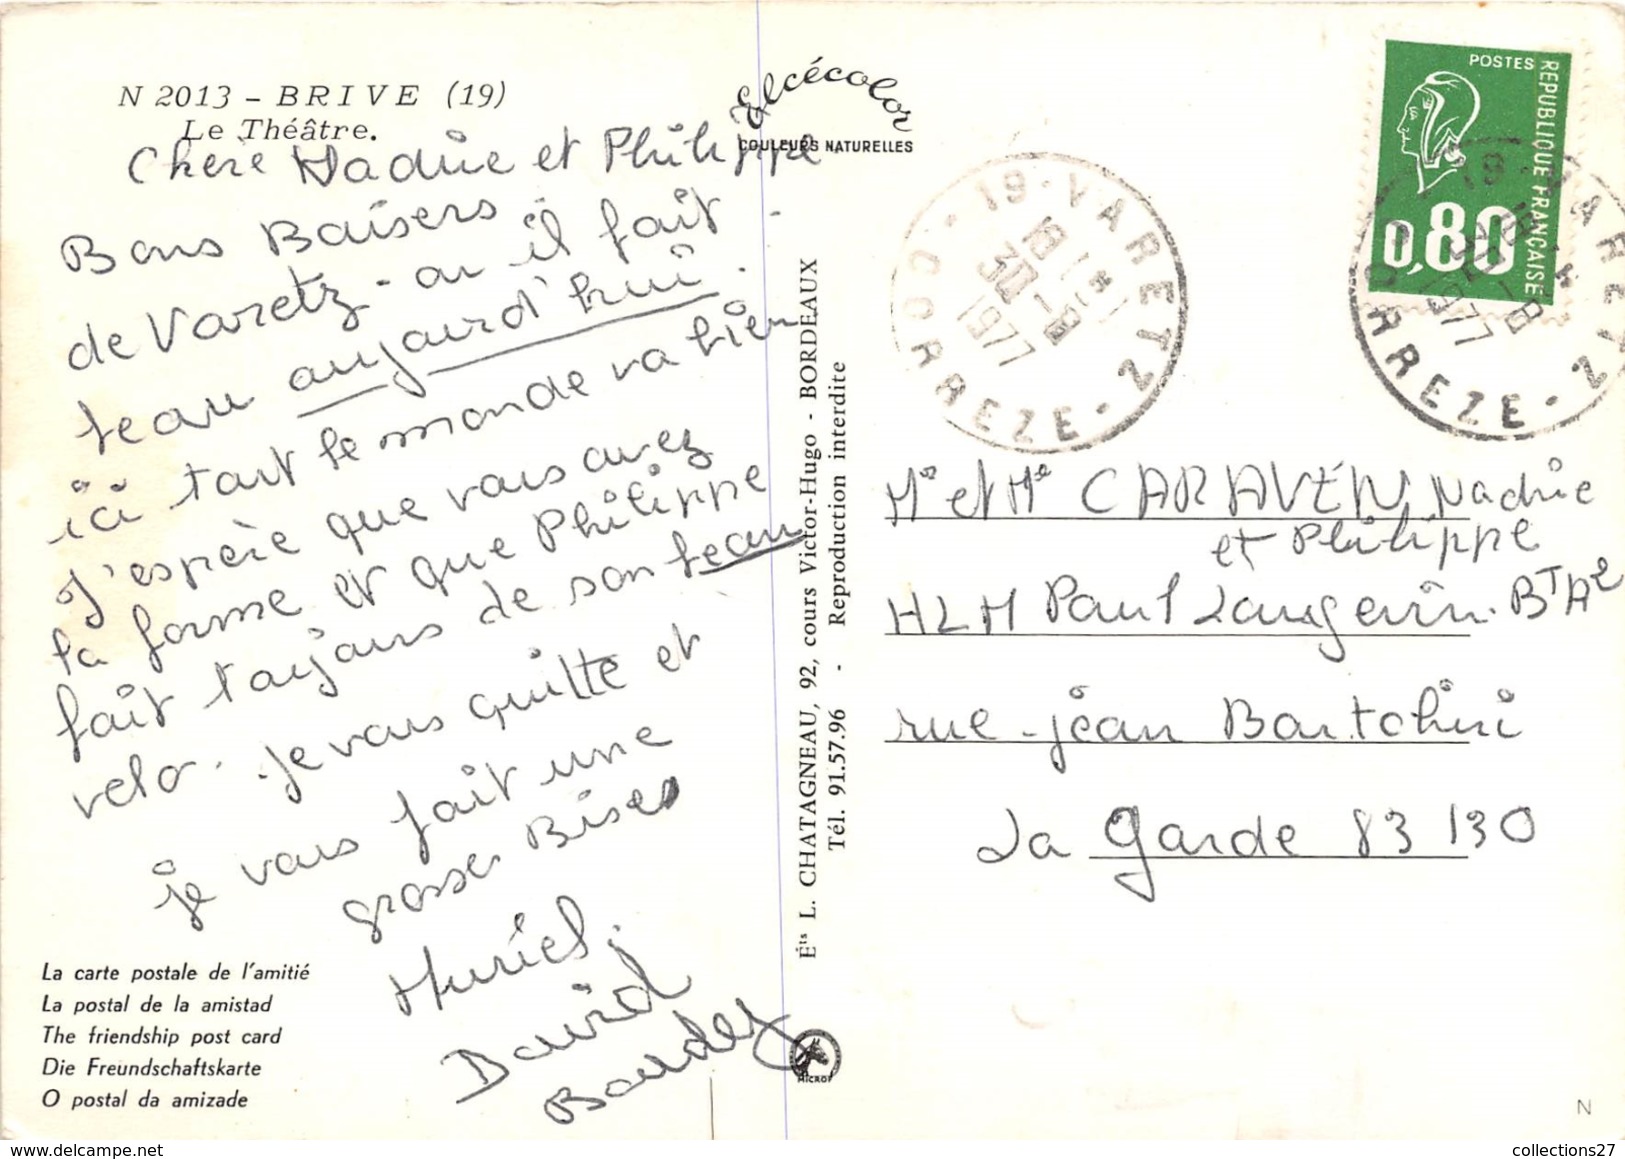 N 2013 - BRIVE (19)
Le Théâtre.
Elcécolor
COULEURS NATURELLES
Chère Nadine et Philippe
Bons Baisers
de Varetz - ou il fait
beau aujourd'hui.
ici tout le monde va bien
J'espère que vous avez
la forme et que Philippe
fait toujours de son beau
velo. je vous quitte et
je vous fait une
grosse Bises
Muriel,
David
La carte postale de l'amitié
La postal de la amistad
The friendship post card
Die Freundschaftskarte
O postal da amizade
Éts L. CHATAGNEAU, 92, cours Victor-Hugo - BORDEAUX
Tél. 91.57.96 - Reproduction interdite
MICROF
POSTES
REPUBLIQUE FRANÇAISE
0,80
19 - VARETZ
CORREZE
18 H
30 - 8
1977
19 - VARETZ
CORREZE
1977
Mr et Me CARAVEN Nadine
et Philippe
HLM Paul Langevin. BT A2
rue jean Bartolini
La Garde 83 130
N
collections27